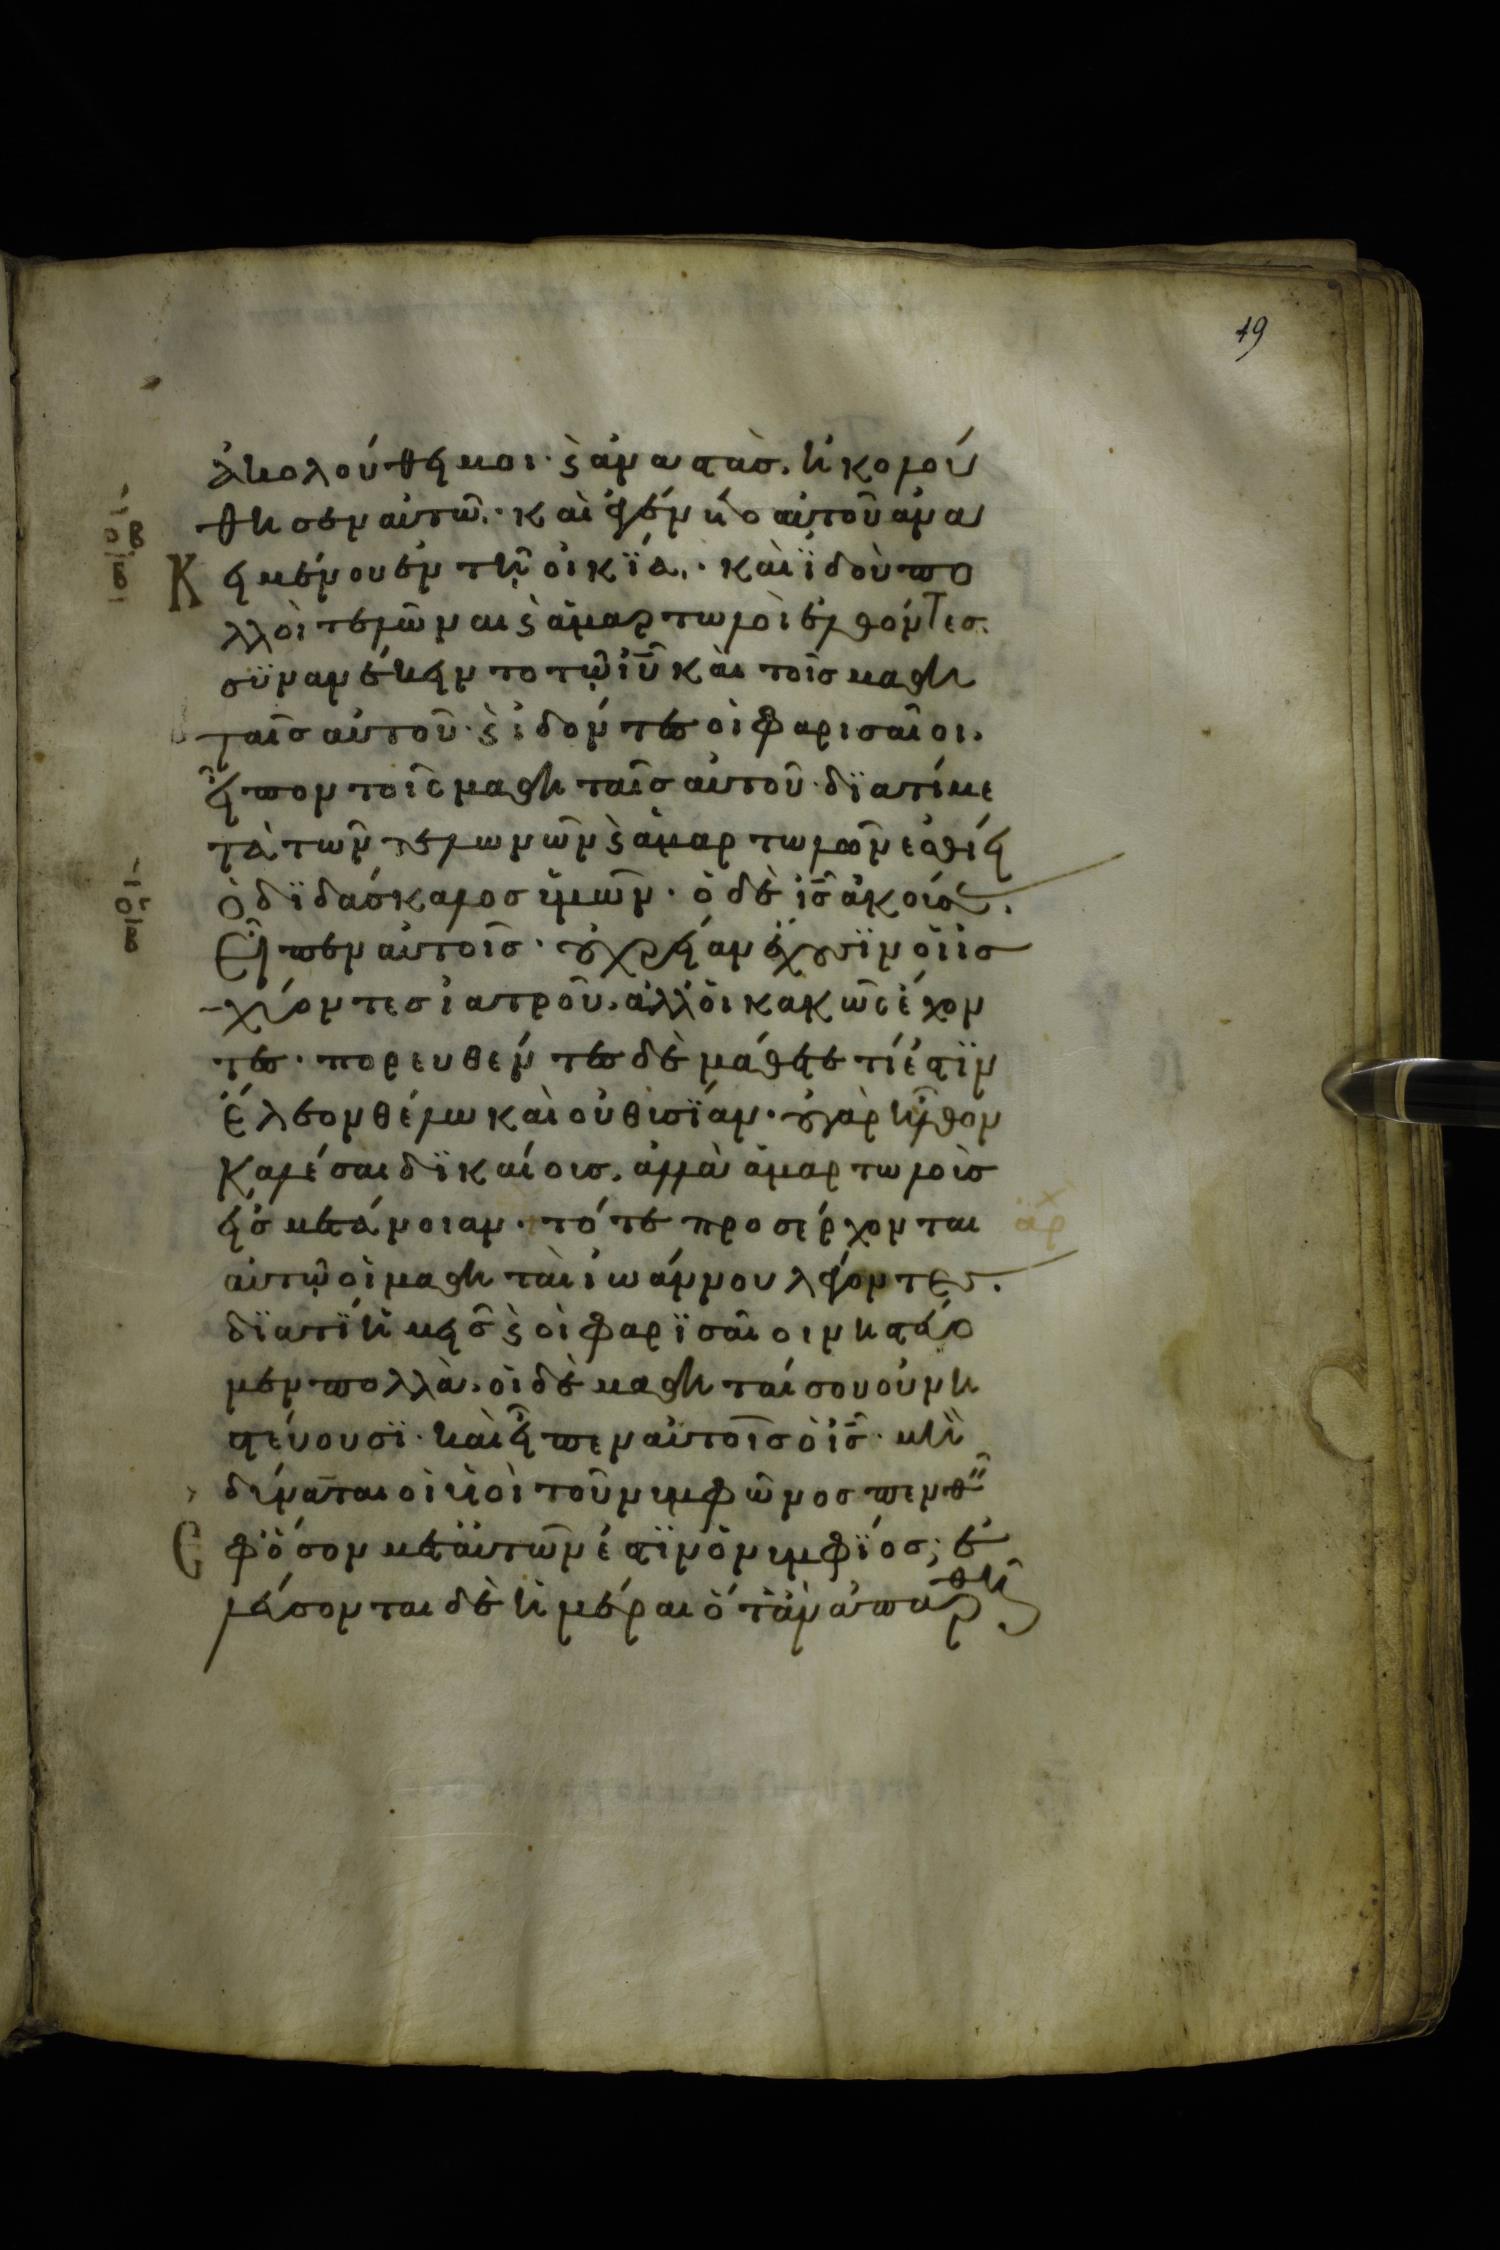 19
ἀκολούθει μοι· ϗ ἀναστὰσ, ἠκολού
θησεν αὐτῶ· καὶ ἐγένετο αὐτοῦ ἀνα
κειμένου ἐν τῆ οἰκΐα· καὶ ϊδοὺ πο
λλοὶ τελῶναι ϗ ἁμαρτωλοὶ ἐλθόντεσ.
συνανέκειντο τῶ ιῦ καὶ τοῖσ μαθη
ταῖσ αὐτοῦ· ϗ ἰδόντεσ οἱ φαρισαῖοι.
εἶπον τοῖς μαθηταῖσ αὐτοῦ· δϊατί με
τὰ τῶν τελωνῶν ϗ ἁμαρτωλῶν ἐσθίει
ὁ δϊδάσκαλοσ ὑμῶν· ὁ δὲ ισ ἀκούσασ.
εἶπεν αὐτοῖσ· οὐ χρείαν ἔχουσϊν οἱ ἰσ
χύοντεσ ἰατροῦ, ἀλλ' οἱ κακῶς ἔχον
τεσ· πορευθέντεσ δὲ μάθετε τί ἐστϊν
ἔλεον θέλω καὶ οὐ θυσΐαν· οὐ γὰρ ἦλθον
καλέσαι δϊκαίουσ, ἀλλὰ ἁμαρτωλοὺσ
εἰσ μετάνοιαν· τότε προσέρχονται
αὐτῶ οἱ μαθηταὶ ἰωάννου λέγοντεσ.
δϊατΐ ἡμεῖσ ϗ οἱ φαρϊσαῖοι νηστεύο
μεν πολλὰ, οἱ δὲ μαθηταί σου οὐ νη
στεύουσϊ· καὶ εἶπεν αὐτοῖσ ὁ ισ· μὴ
δύνανται οἱ υἱοὶ τοῦ νυμφῶνοσ πενθεῖν
ἐφ' ὅσον μετ' αὐτῶν ἐστϊν ὁ νυμφΐοσ; ἐ
λεύσονται δὲ ἡμέραι ὅταν ἀπαρθῆ